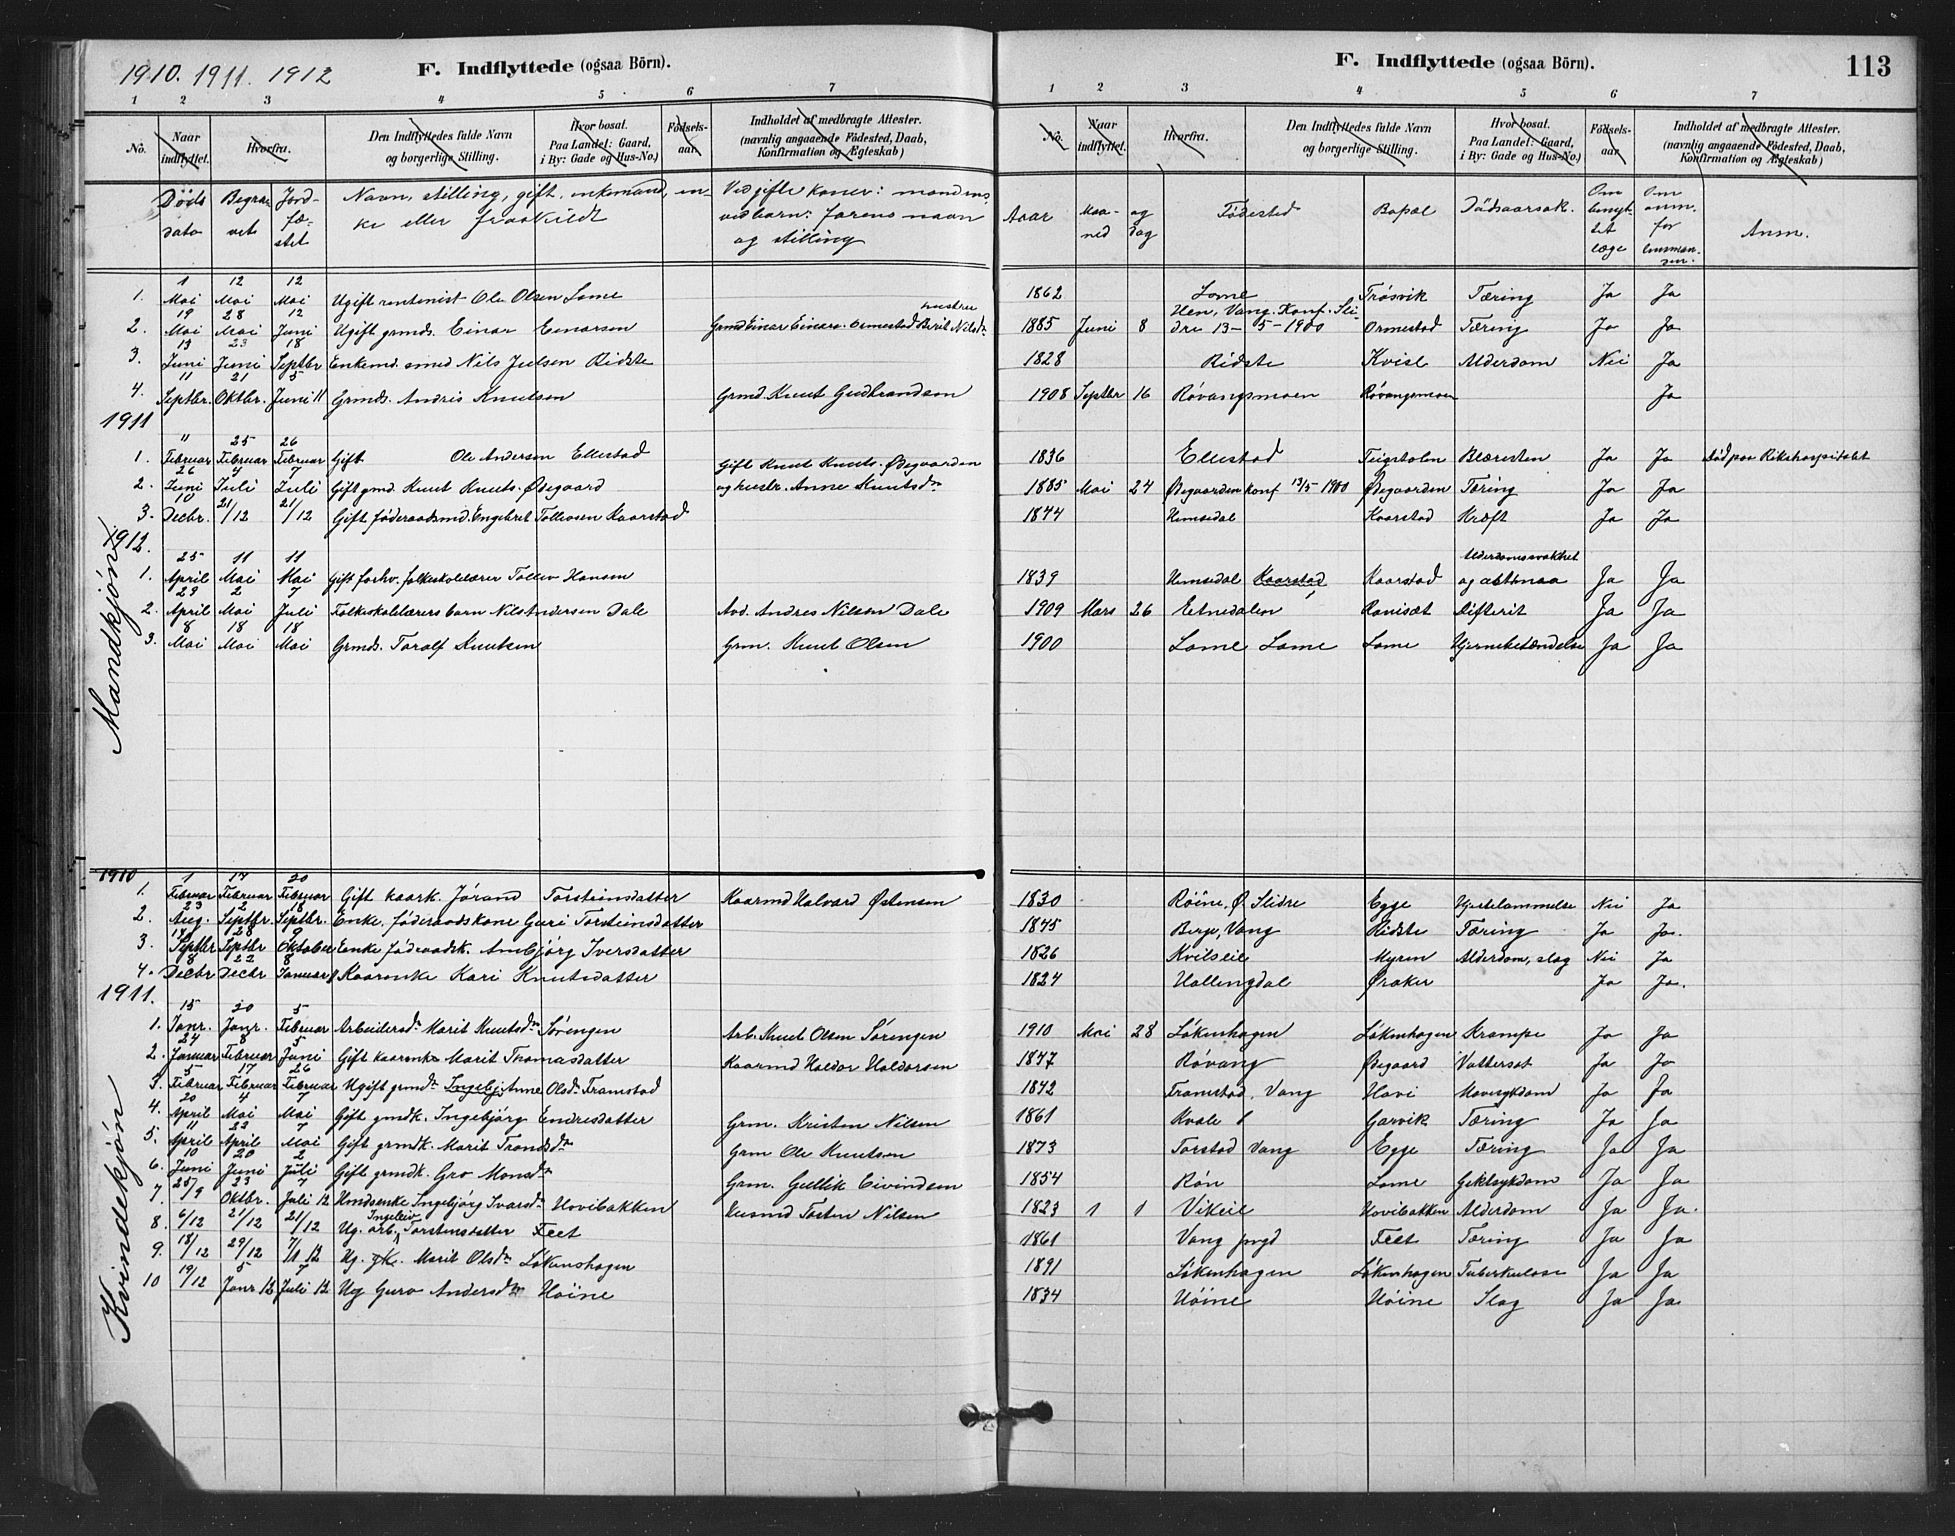 1910. 1911. 1912
F. Indflyttede (ogsaa Börn).
1 2 3 4 5 6 7
No. Naar indflyttet. Hvorfra. Den Indflyttedes fulde Navn og borgerlige Stilling. Hvor bosat. Paa Landet: Gaard, i By: Gade og Hus-No.) Fødsels-aar. Indholdet af medbragte Attester. (navnlig angaaende Födested, Daab, Konfirmation og Ægteskab)
Døds dato Begravet Jordfæstet Navn, stilling, gift, enkemand, enke eller fraskildt Ved gifte koner: mandens, ved barn: farens navn og stilling
1. 1 Mai 12 Mai 12 Mai Ugift rentenist Ole Olsen Lome
2. 19 Mai 28 Mai 12 Juni Ugift grmds. Einar Einarsen Grmd Einar Einars. Ormestad hustru Berit Nilsdr
3. 13 Juni 23 Juni 18 Septbr Enkemd. smed Nils Juulsen Ridste
4. 11 Septbr. 21 Oktbr. 5 Juni 11 Grmds. Andris Knutsen Grmd. Knut Gudbrandsen
1911
1. 11 Februar 25 Februar 26 Februar Gift Ole Andersen Ellestad
2. 26 Juni 7 Juli 7 Juli Gift gmd. Knut Knuts. Ødegaard Gift Knut Knuts. Ødegaarden og hustr. Anne Knutsdr
3. 10 Decbr. 21/12 21/12 Gift föderaadsmd. Engebret Tollevsen Kaarstad
1912.
1. 25 April 11 Mai 11 Mai Gift forhv. folkeskolelærer Tollev Hansen
2. 29 April 2 Mai 7 Juli Folkeskolelærers barn Nils Andersen Dale Avd. Andres Nilsen Dale
3. 8 Mai 18 Mai 18 Mai Grmds. Toralf Knutsen Grm. Knut Olsen
Mandkjøn
1910
1. 1 Februar 17 Februar 20 Februar Gift kaark. Jörand Torsteinsdatter Kaarmd Halvard Østensen
2. 23 Aug. 2 Septbr. 18 Septbr. Enke, föderaadskone Guri Torsteinsdatter
3. 17 Septbr 28 Septbr 9 Oktober Enke föderaadsk. Ambjørg Iversdatter
4. 8 Decbr 22 Decbr 8 Januar Kaarenke Kari Knutsdatter
1911.
1. 15 Janr. 20 Janr. 5 Februar Arbeidersdr Marit Knutsdr Sørengen Arb. Knut Olsen Sørengen
2. 24 Januar 8 Februar 5 Juni Gift kaarenke Marit Thomasdatter Kaarmd Haldor Haldorsen
3. 5 Februar 17 Februar 26 Februar Ugift grmdr Ingebj. Anne Olsdr Framstad
4. 20 April 4 Mai 7 Mai Gift gmdk. Ingebjørg Endresdatter Grm. Kristen Nilsen
5. 11 April 22 April 7 Mai Gift grmdk. Marit Trondsdr Grm Ole Knutsen
6. 10 Juni 20 Juni 2 Juli Gift grmdk. Gro Monsdr Grm. Gullik Eivindsen
7. 25/9 23 Oktbr. 7 Juli 12 Husmdsenke Ingebjørg Ivarsdr Hovibakken Husmd Torsten Nilsen
8. 6/12 21/12 21/12 Ug. arb. Ingeleiv Torstensdatter Feet
9. 18/12 29/12 7/1 12 Ug. gk. Marit Olsdr Løkenshagen
10 19/12 5 Janr 12 7 Juli 12 Ug Guro Andersdr Høine
Kvindekjøn
F. Indflyttede (ogsaa Börn).
113
1 2 3 4 5 6 7
No. Naar indflyttet. Hvorfra. Den Indflyttedes fulde Navn og borgerlige Stilling. Hvor bosat. Paa Landet: Gaard, i By: Gade og Hus-No.) Fødsels-aar Indholdet af medbragte Attester. (navnlig angaaende Födested, Daab, Konfirmation og Ægteskab)
Aaar Maaned og dag Fødested Bopæl Dødsaarsak. Om benyttet læge Om anm. for lensmanden. Anm.
1862 Lome Trøsvik Tæring Ja Ja
1885 Juni 8 Hen, Vang. Konf. Slidre 13-5-1900 Ormestad Tæring Ja Ja
1828 Ridste Kvisl Alderdom Nei Ja
1908 Septbr 16 Røvangsmoen Røvangsmoen Ja
1836 Ellestad Teigstolen Blæresten Ja Ja Död paa Rikshospitalet
1885 Mai 24 Ødegaarden konf 13/5 1900 Ødegaarden Tæring Ja Ja
1844 Hemsedal Kaarstad Kræft Ja Ja
1839 Hemsedal Kaarstad Kaarstad Alderdomssvakhet og asthmaa Ja Ja
1909 Mars 26 Etnedalen Ranisæt Difterit Ja Ja
1900 Lome Lome Lome Hjernebetændelse Ja Ja
1830 Røine, Ø. Slidre Egge Hjertelammelse Nei Ja
1845 Berge, Vang Ridste Tæring Ja Ja.
1826 Kvilseie Myren Alderdom, slag Nei Ja
1824 Hallingdal Øraker Ja Ja.
1910 Mai 28 Løkenhagen Løkenhagen Krampe Ja Ja
1847 Røvang Ødegaard Vattersot Ja Ja
1842 Framstad, Vang Havi Mavesykdom Ja Ja
1861 Kvale Garvik Tæring Ja Ja
1873 Torstad Vang Egge Tæring Ja Ja
1854 Røn Lome Giktsykdom Ja Ja
1823 1 1 Vikeie Hovibakken Alderdom Ja Ja.
1861 Vang prgd Feet Tæring Ja Ja
1891 Løkenhagen Løkenhagen Tuberkulose Ja Ja
1834 Høine Høine Slag Ja Ja